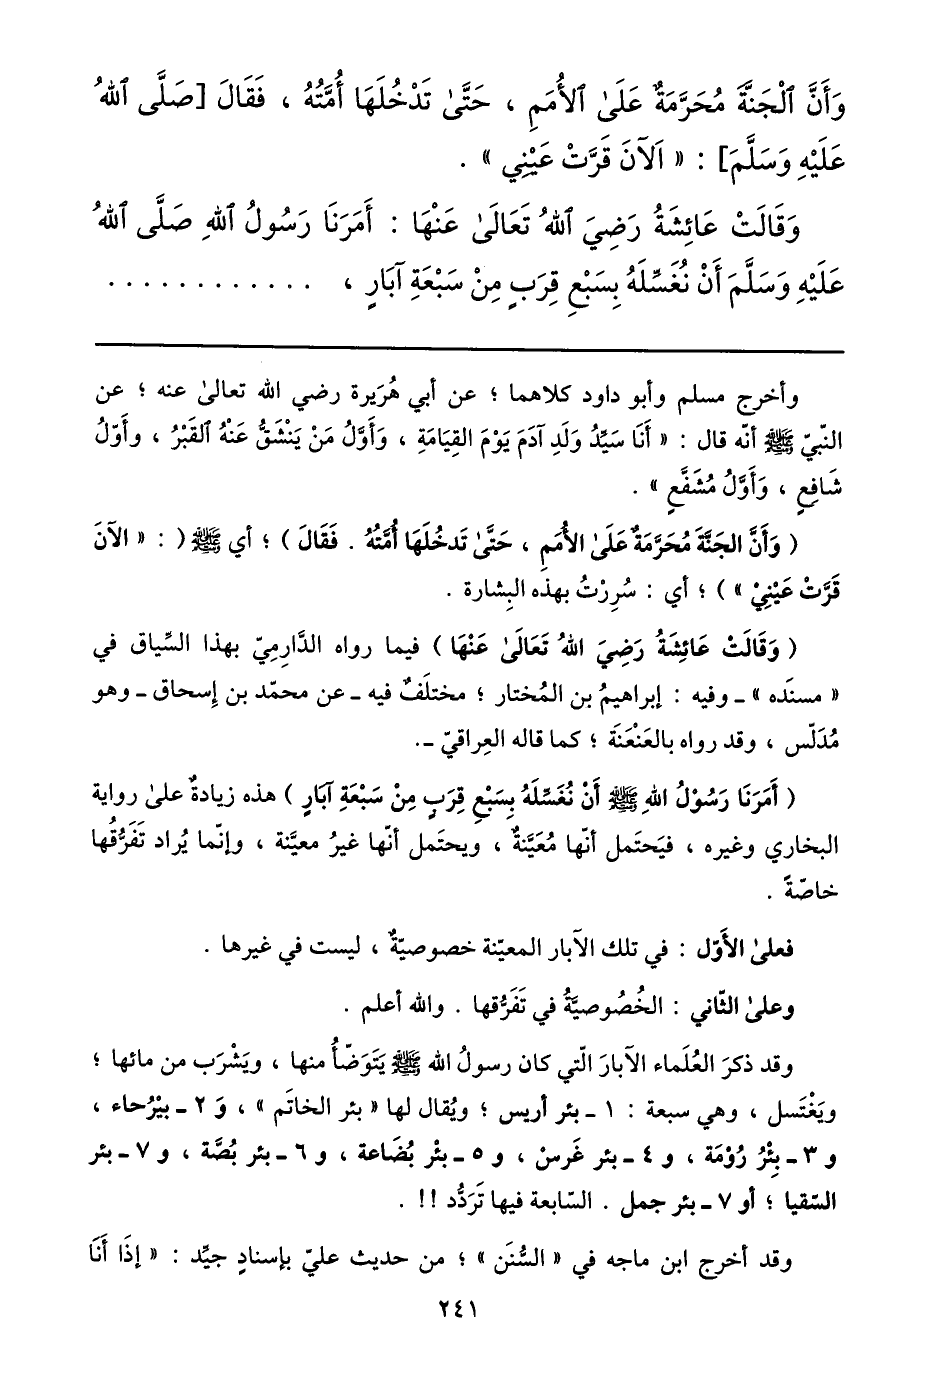 وَأَنَّ ٱلْجَنَّةَ مُحَرَّمَةٌ عَلَىٰ ٱلأُمَمِ ، حَتَّىٰ تَدْخُلَهَا أُمَّتُهُ ، فَقَالَ [صَلَّى ٱللهُ
عَلَيْهِ وَسَلَّمَ] : « اَلآنَ قَرَّتْ عَيْنِي » .
وَقَالَتْ عَائِشَةُ رَضِيَ ٱللهُ تَعَالَىٰ عَنْهَا : أَمَرَنَا رَسُولُ ٱللهِ صَلَّى ٱللهُ
عَلَيْهِ وَسَلَّمَ أَنْ نُغَسِّلَهُ بِسَبْعِ قِرَبٍ مِنْ سَبْعَةِ آبَارٍ ، . . . . . . . . . . . .
وأخرج مسلم وأبو داود كلاهما ؛ عن أبي هُرَيرة رضي الله تعالىٰ عنه ؛ عن
النّبيّ ﷺ أنّه قال : « أَنَا سَيِّدُ وَلَدِ آدَمَ يَوْمَ القِيَامَةِ ، وَأَوَّلُ مَنْ يَنْشَقُّ عَنْهُ ٱلقَبْرُ ، وأَوّلُ
شَافِعٍ ، وَأَوَّلُ مُشَفَّعٍ » .
( وَأَنَّ الجَنَّةَ مُحَرَّمَةٌ عَلَىٰ الأُمَمِ ، حَتَّىٰ تَدخُلَهَا أُمَّتُهُ . فَقَالَ ) ؛ أي ﷺ ( : « الآنَ
قَرَّتْ عَيْنِيْ » ) ؛ أي : سُرِرْتُ بهذه البِشارة .
( وَقَالَتْ عَائِشَةُ رَضِيَ اللهُ تَعَالَىٰ عَنْهَا ) فيما رواه الدَّارِميّ بهذا السِّياق في
« مسنَده » ـ وفيه : إبراهيمُ بن المُختار ؛ مختلَفٌ فيه ـ عن محمّد بن إسحاق ـ وهو
مُدَلّس ، وقد رواه بالعَنْعَنَة ؛ كما قاله العِراقيّ ـ.
( أَمَرَنَا رَسُوْلُ اللهِ ﷺ أَنْ نُغَسِّلَهُ بِسَبْعِ قِرَبٍ مِنْ سَبْعَةِ آبَارٍ ) هذه زيادةٌ علىٰ رواية
البخاري وغيره ، فيَحتَمل أنّها مُعَيَّنةٌ ، ويحتَمل أنّها غيرُ معيَّنة ، وإنّما يُراد تَفَرُّقُها
خاصّةً .
فعلىٰ الأَوّل : في تلك الآبار المعيّنة خصوصيّةٌ ، ليست في غيرها .
وعلىٰ الثّاني : الخُصُوصيَّةُ في تَفَرُّقها . والله أعلم .
وقد ذكرَ العُلَماء الآبارَ الّتي كان رسولُ الله ﷺ يَتَوَضّأُ منها ، ويَشْرَب من مائها ؛
ويَغْتَسل ، وهي سبعة : ١ ـ بئر أريس ؛ ويُقال لها « بئر الخاتَم » ، وَ ٢ ـ بيْرُحاء ،
و ٣ ـ بِئْرُ رُوْمَة ، و ٤ ـ بئر غَرسْ ، و ٥ ـ بئْر بُضَاعة ، و ٦ ـ بئر بُصَّة ، و ٧ ـ بئر
السّقيا ؛ أو ٧ ـ بئر جمل . السّابعة فيها تَرَدُّد !! .
وقد أخرج ابن ماجه في « السُّنَن » ؛ من حديث عليّ بإسنادٍ جيِّد : « إِذَا أَنَا
٢٤١